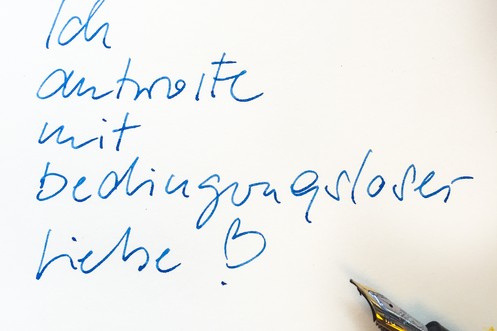 Ich
antworte
mit
bedingungsloser
Liebe B